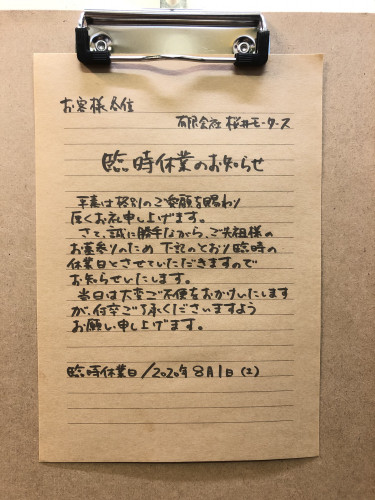 お客様各位
有限会社 桜井モータース
臨時休業のお知らせ
平素は格別のご愛顧を賜わり
厚くお礼申し上げます。
さて、誠に勝手ながら、ご先祖様の
お墓参りのため 下記のとおり臨時の
休業日とさせていただきますので
お知らせいたします。
当日は大変ご不便をおかけいたします
が、何卒ご了承くださいますよう
お願い申し上げます。
臨時休業日/2020年8月1日(土)